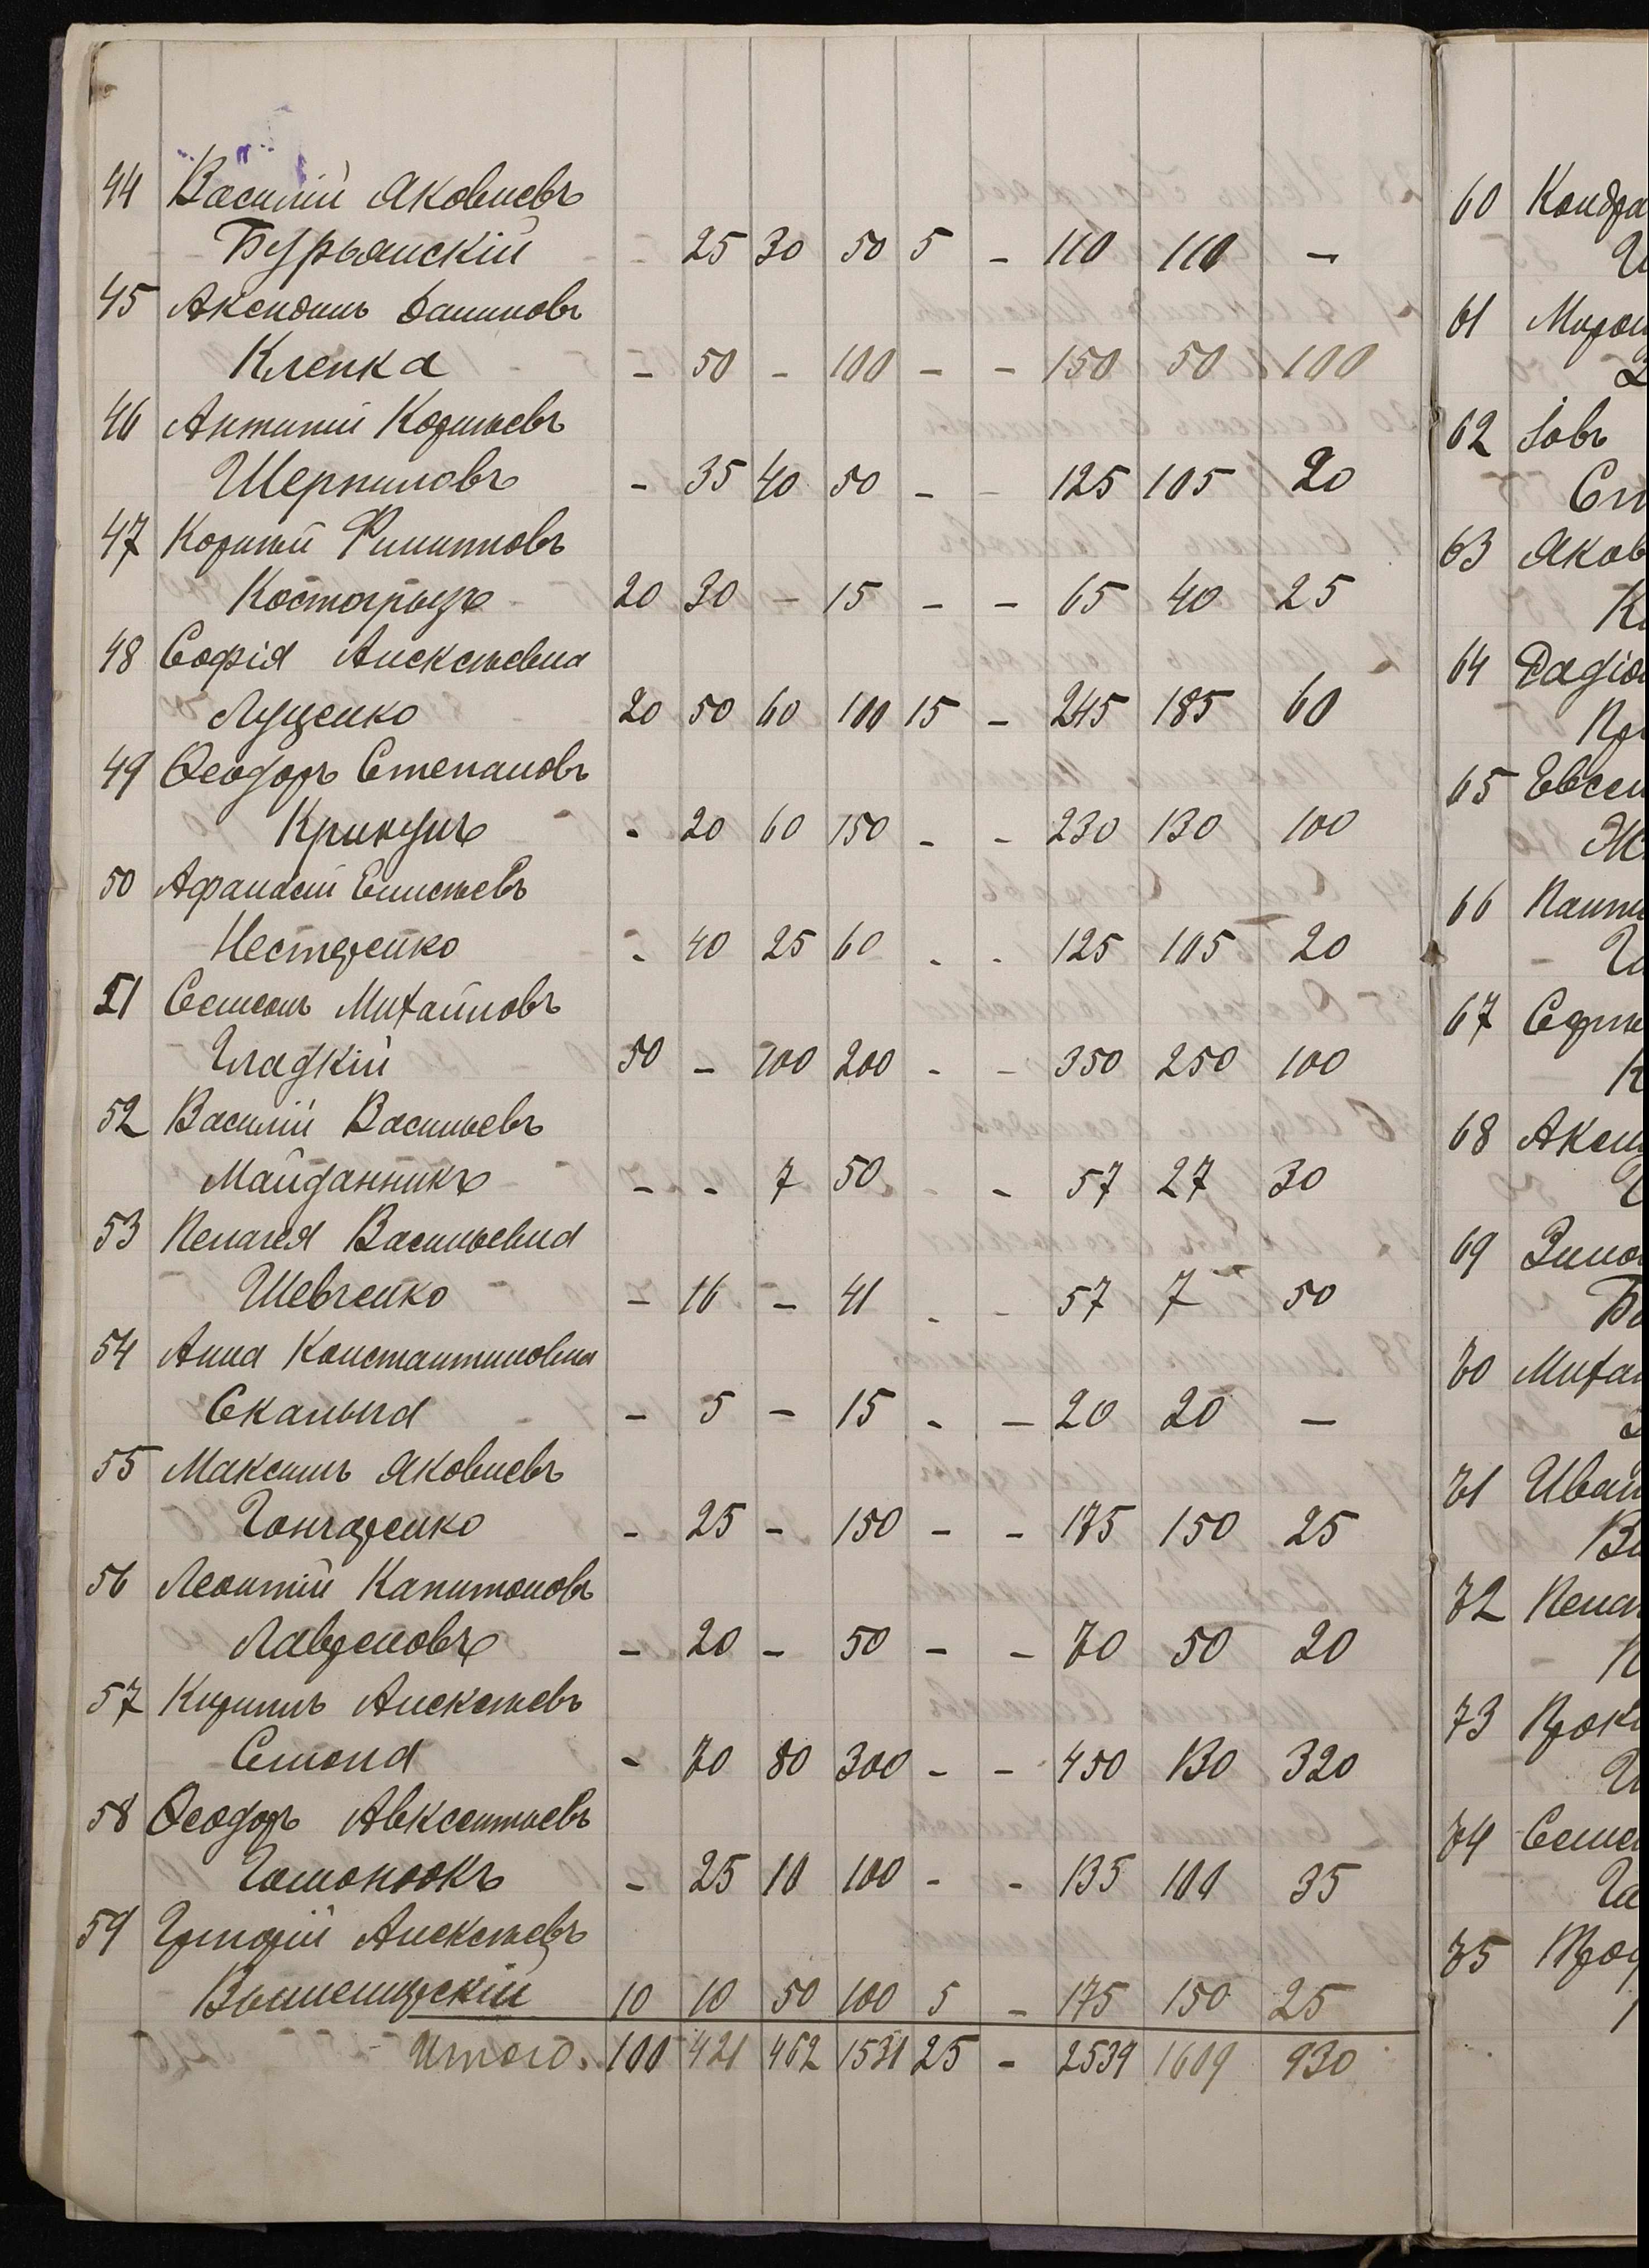 44 Василій Яковлевъ
Бурьянскій - 25 30 50 5 - 110 110 -
45 Аксентій Даниловъ
Клепка - 50 - 100 - - 150 50 100
46 Антипій Кодратьевъ
Шерпиловъ - 35 40 50 - - 125 105 20
47 Корнилій Филипповъ
Костогрызъ 20 30 - 15 - - 65 40 25
48 Софія Алексѣевна
Луценко 20 50 60 100 15 - 245 185 60
49 Ѳеодоръ Степановъ
Крикунъ - 20 60 150 - - 230 130 100
50 Афанасій Елисѣевъ
Нестеренко - 40 25 60 - - 125 105 20
51 Семенъ Михайловъ
Гладкій 50 - 100 200 - - 350 250 100
52 Василій Васильевъ
Майданникъ - - 7 50 - - 57 27 30
53 Пелагея Васильевна
Шевченко - 16 - 41 - - 57 7 50
54 Анна Константиновна
Скалыга - 5 - 15 - - 20 20 -
55 Максимъ Яковлевъ
Гончаренко - 25 - 150 - - 175 150 25
56 Леонтій Капитоновъ
Лавреновъ - 20 - 50 - - 70 50 20
57 Кирилъ Алексѣевъ
Смола - 70 80 300 - - 450 130 320
58 Ѳеодоръ Авксентьевъ
- 25 10 100 - - 135 100 35
59 Григорій Алексѣевъ
10 10 50 100 5 - 175 150 25
Итого. 100 421 462 1531 25 - 2539 1609 930
60 Кондра
61 Мирон
62 Іовъ
63 Яков
64 Радіо
65 Евсе
66 Панти
67 Сергѣ
68 Аксе
69 Зино
70 Михаи
71 Иван
72 Пела
73 Проко
74 Семе
75 Троф